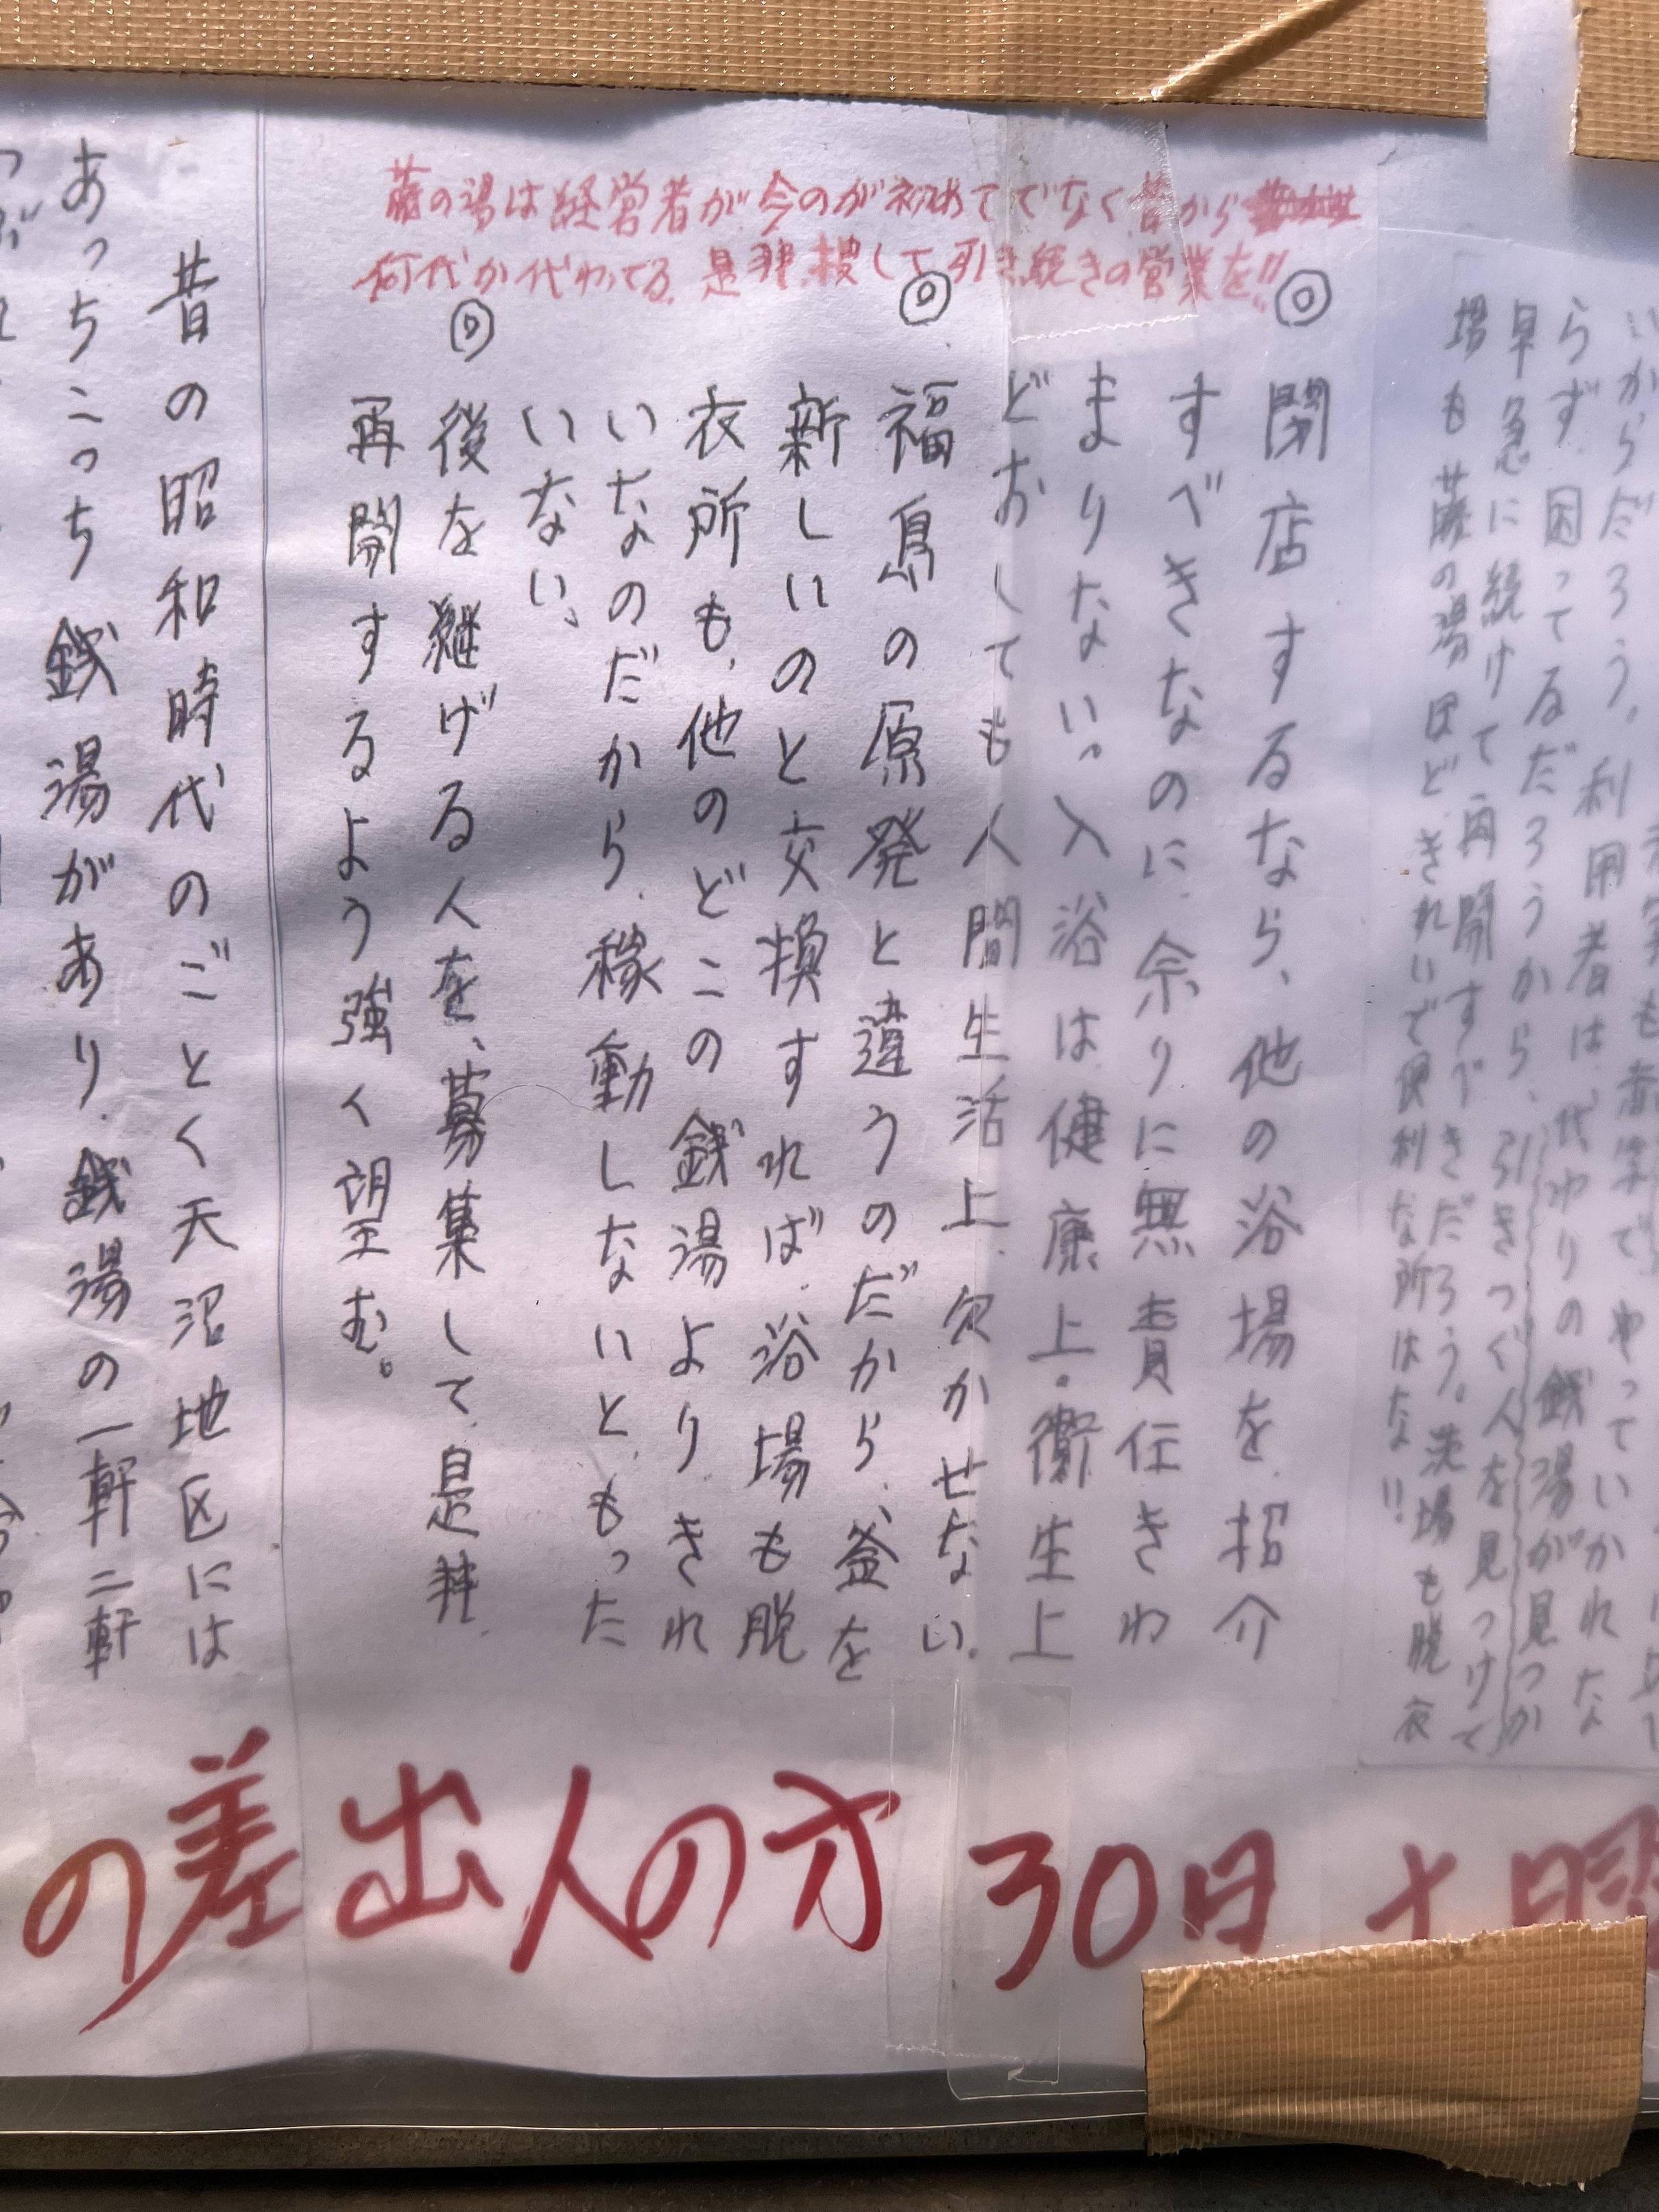 藤の湯は経営者が今のが初めてでなく昔から
何代か代わってる.是非捜して引き続きの営業を!!
いからだろう。利用者は、代わりの銭湯が見つか
らず困ってるだろうから、引きつぐ人を見つけて
早急に続けて再開すべきだろう。洗場も脱衣
場も藤の湯ほど、きれいで便利な所はな!!
◎閉店するなら、他の浴場を紹介
すべきなのに余りに無責任きわ
まりない。入浴は健康上。衛生上
どおしても人間生活上、欠かせない。
◎福島の原発と違うのだから、釜を
新しいのと交換すれば、浴場も脱
衣所も、他のどこの銭湯よりきれ
いなのだから、稼動しないと、もった
いない、
◎後を継げる人を、募集して是非
再開するよう強く望む。
昔の昭和時代のごとく天沼地区には
あっちこっち銭湯があり、銭湯の一軒二軒
の差出人の方 30日土曜